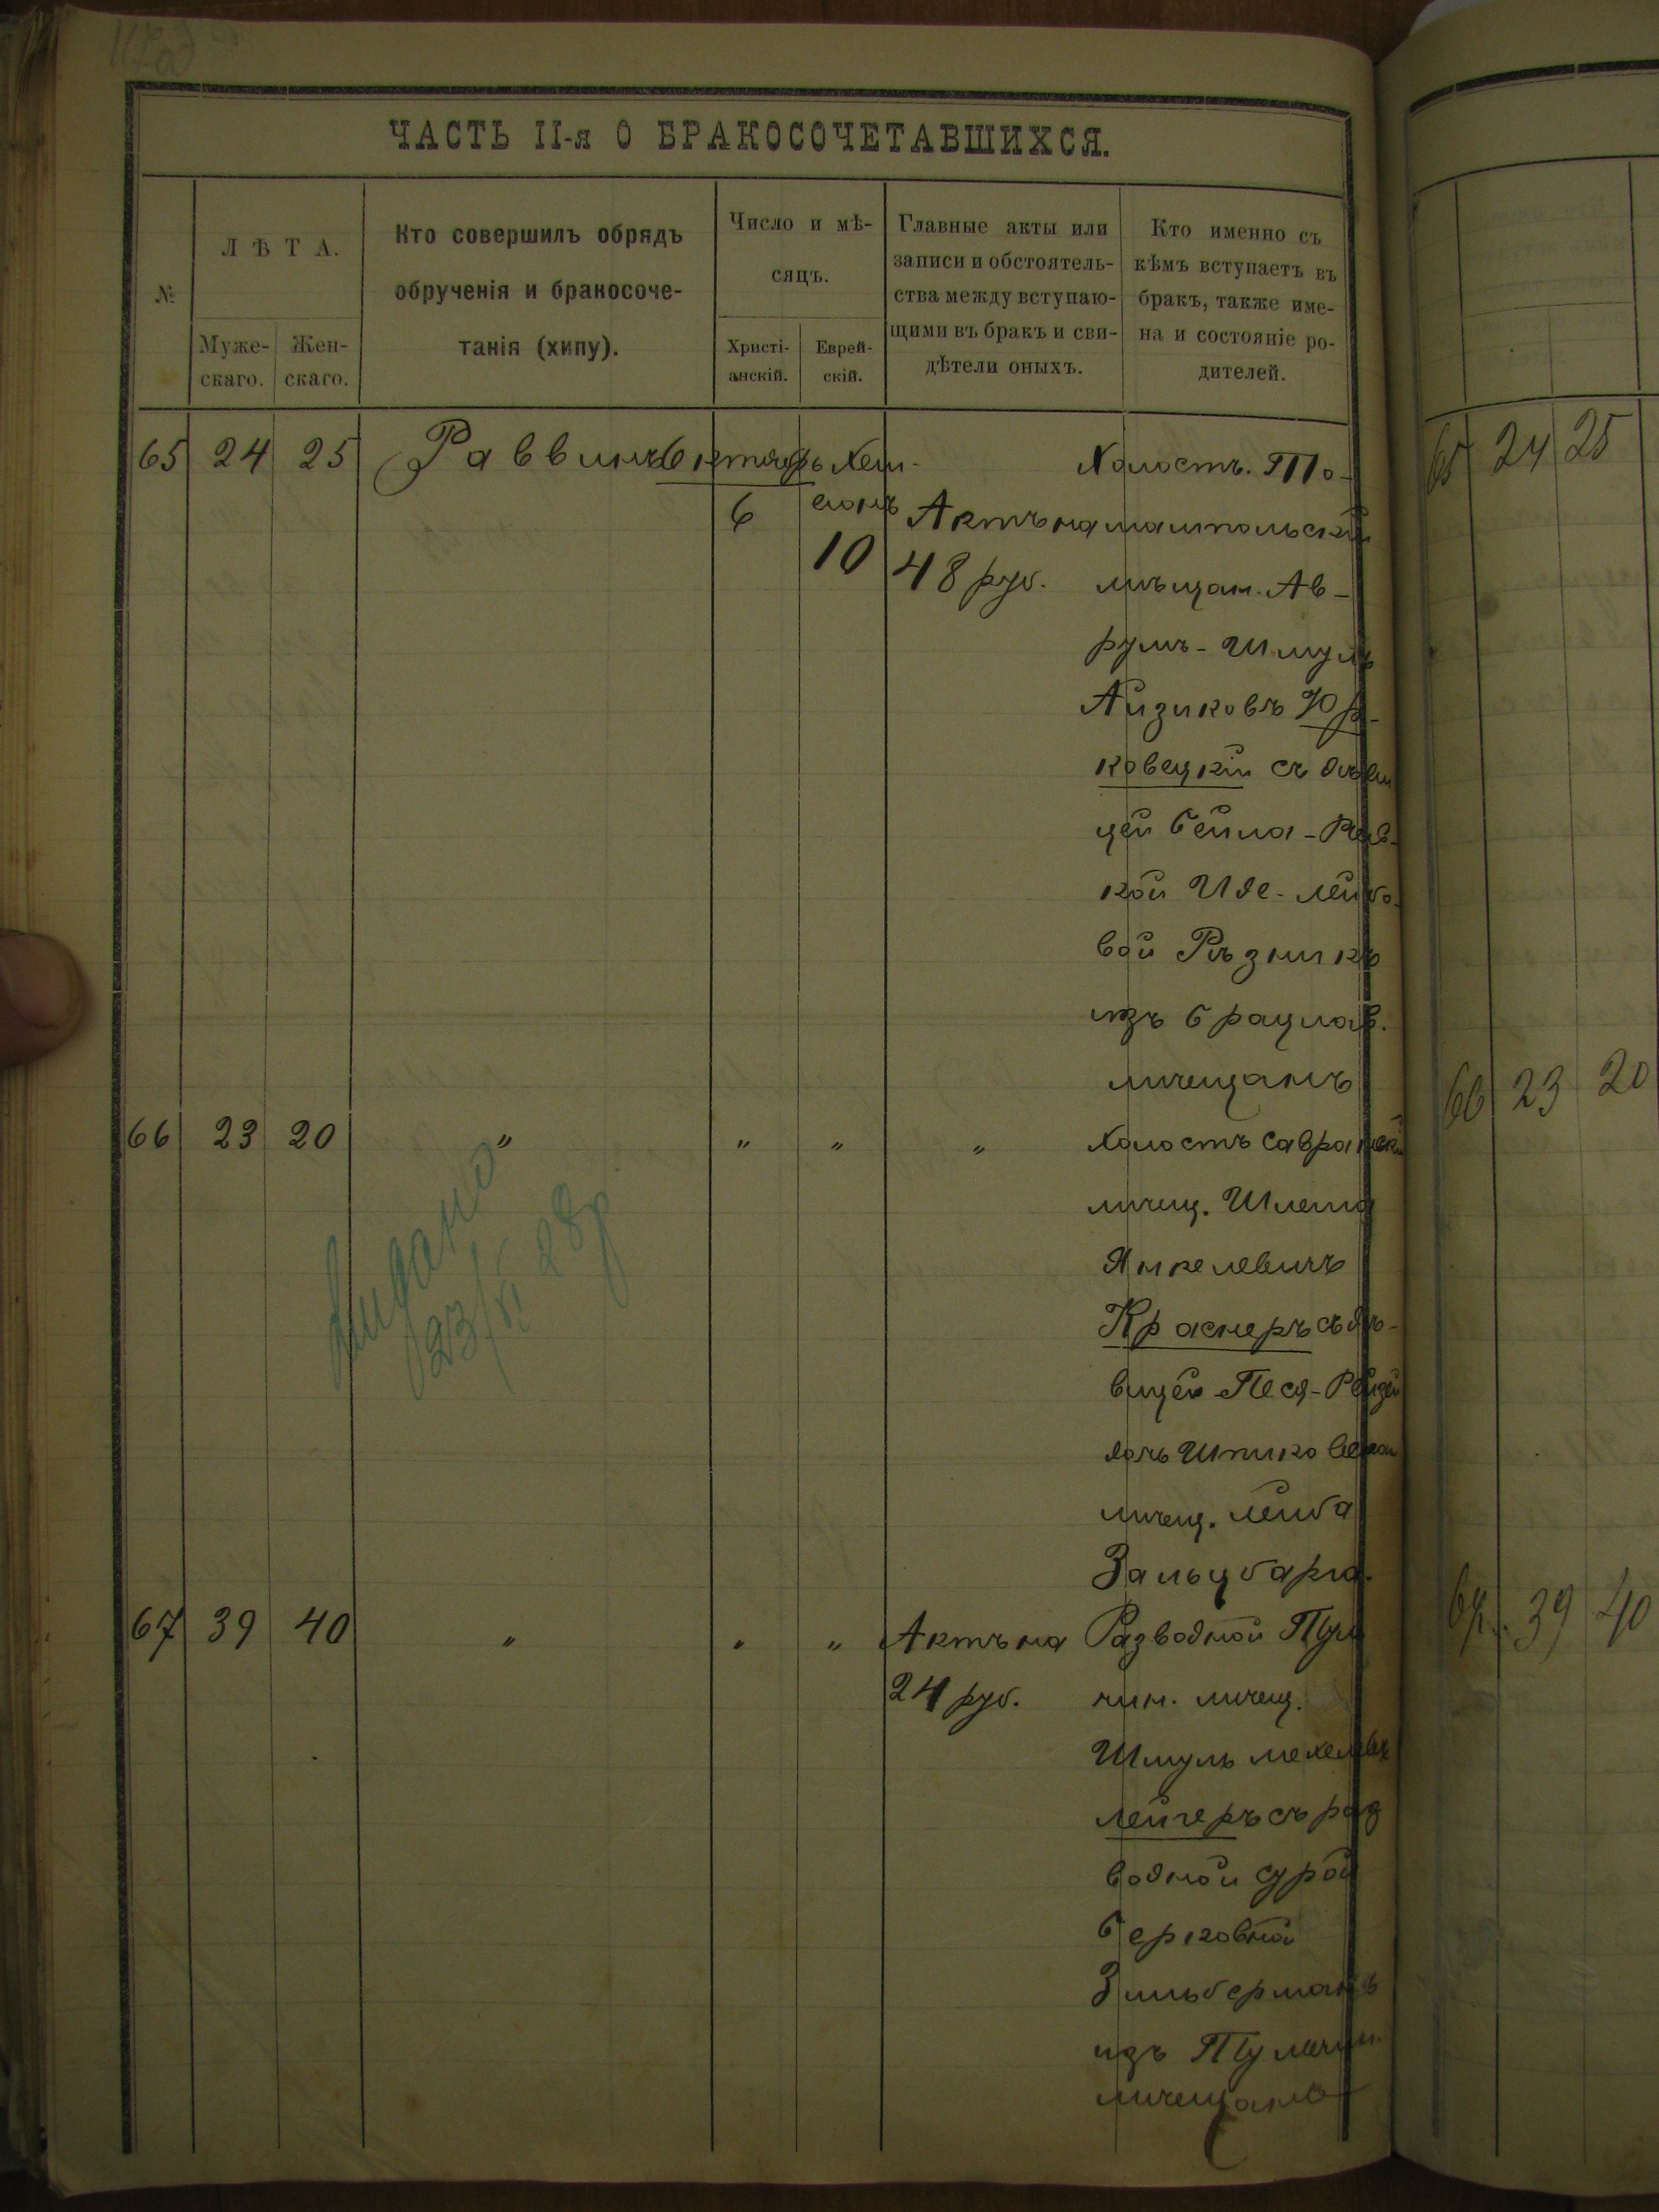 ЧАСТЬ II-я О БРАКОСОЧЕТАВШИХСЯ.
№
ЛѢТА.
Муже-
скаго.
Жен-
скаго.
Кто совершилъ обрядъ
обрученія и бракосоче-
танія (хипу).
Число и мѣ-
сяцъ.
Христі-
анскій.
Еврей-
скій.
Главные акты или
записи и обстоятель-
ства между вступаю-
щими въ бракъ и сви-
дѣтели оныхъ.
Кто именно съ
кѣмъ вступаетъ въ
бракъ, также име-
на и состояніе ро-
дителей.
65 24 25 Раввинъ Октябрь Хеш- Холостъ. То-
6 вонъ Актъ на машпольскій
10 48 руб. мѣщан. Ав-
румъ-Шмуль
Айзиковъ Юр-
ковецкій съ дѣви
цей Бейла-Рив-
кой Иде-Лейбо-
вой Рѣзникъ
изъ Брацлав.
мѣщанъ
66 23 20 " " " " Холостъ Савранскій
мѣщ. Шлема
Янкелевичъ
Краснеръ съ дѣ-
вицей Песя-Рейзей
дочь Шпиков
мѣщ. Лейба
Зальцбарга.
67 39 40 " " " Актъ на Разводной Тул
24 руб. чин. мѣщ.
Шмуль
Лейгеръ съ раз
водной Сурой
Берковной
Зильберманъ
изъ Тульчин.
мѣщанъ
Выдано
23/VI 28 р
65 24 25
66 23 20
67 39 40